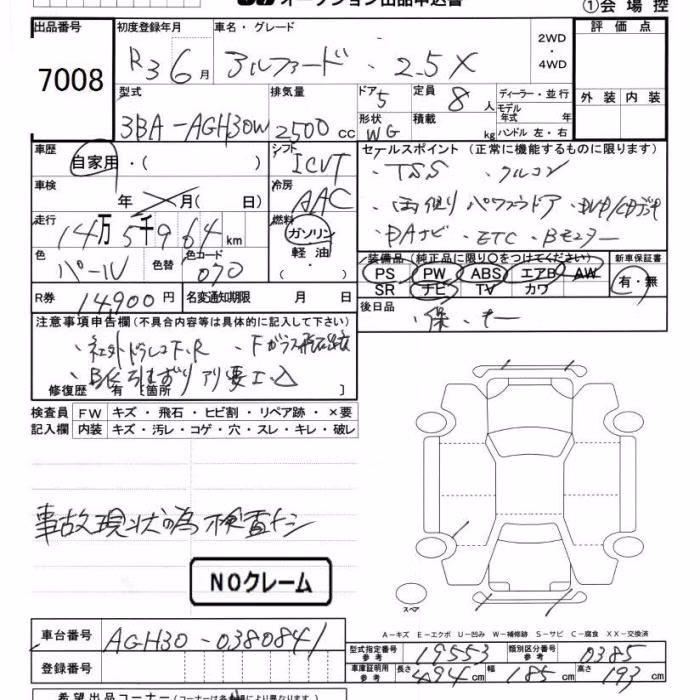 オークション出品申込書
①会場控
出品番号
7008
初度登録年月
R3 6月
車名・グレード
アルファード・2.5X
2WD・4WD
評価点
外装 内装
型式
3BA-AGH30W
排気量
2500cc
ドア
5
形状
WG
定員
8人
積載
kg
ディーラー・並行
モデル年式 年
ハンドル 左・右
車歴
自家用・( )
シフト
ICVT
車検
年 月( 日)
冷房
AAC
走行
14万5千964km
燃料
ガソリン
軽油
・( )
色
パール
色替
色コード
070
R券
14,900円
名変通知期限 月 日
セールスポイント(正常に機能するものに限ります)
・TSS ・クルコン
・両側パワースドア・DVD/CDデッキ
・DAナビ・ETC・Bモニター
装備品(純正品に限り○をつけてください)
PS PW ABS エアB AW
SR ナビ TV カワ
新車保証書
有・無
後日品
・保・キー
注意事項申告欄(不具合内容等は具体的に記入して下さい)
・社外ドラレコF、R ・Fガラス飛石
・B/K引きずりアリ要工
修復歴 有 [箇所 ]
検査員記入欄
FW キズ・飛石・ヒビ割・リペア跡・×要
内装 キズ・汚レ・コゲ・穴・スレ・キレ・破レ
事故現状の為検査ナシ
NOクレーム
スペア
A-キズ E-エクボ U-凹み W-補修跡 S-サビ C-腐食 XX-交換済
車台番号
AGH30-0380841
登録番号
型式指定番号参考
19553
類別区分番号参考
0385
車庫証明用参考
長さ 494cm 幅 185cm 高さ 193cm
希望出品コーナー(コーナーは各会場により異なります)